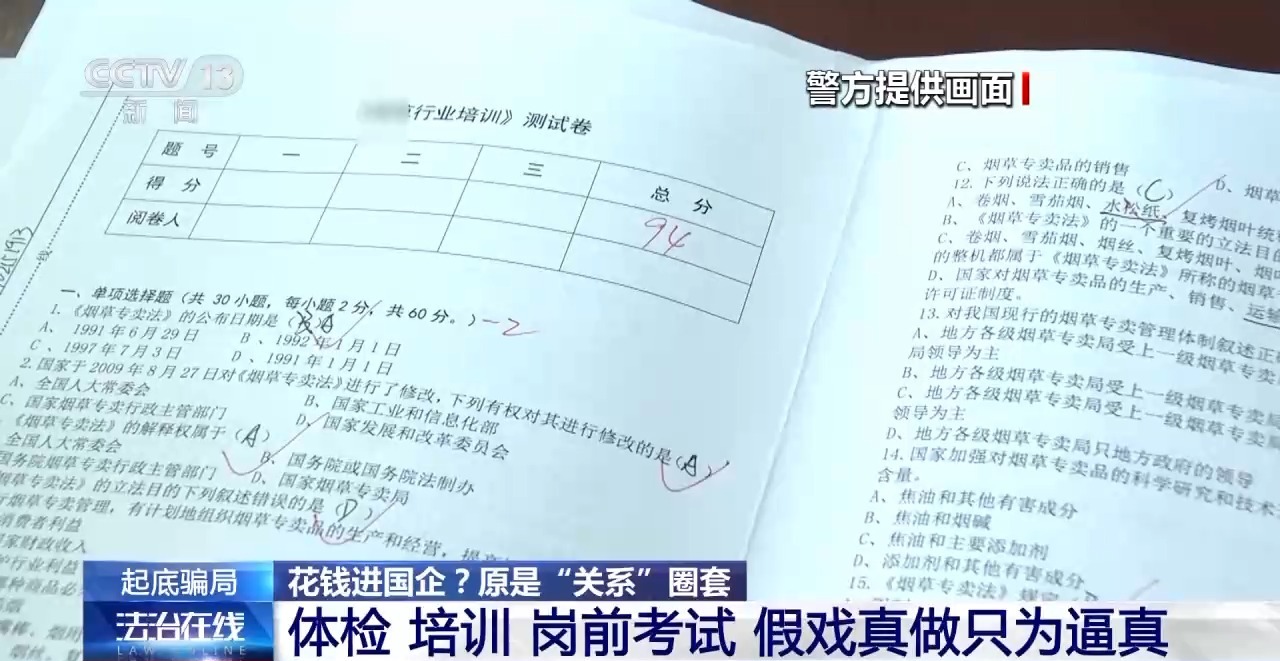 CCTV 13
新闻
警方提供画面
行业培训》测试卷
题 号 一 二 三 总 分
得 分 94
阅卷人
线
一、单项选择题（共 30 小题，每小题 2 分，共 60 分。）-2
1.《烟草专卖法》的公布日期是（A）
A、 1991 年 6 月 29 日 B 、1992 年 1 月 1 日
C 、1997 年 7 月 3 日 D 、1991 年 1 月 1 日
2.国家于 2009 年 8 月 27 日对《烟草专卖法》进行了修改，下列有权对其进行修改的是（A）
A、全国人大常委会 B、国家工业和信息化部
C、国家烟草专卖行政主管部门 D、国家发展和改革委员会
《烟草专卖法》的解释权属于（A）
全国人大常委会 B、国务院或国务院法制办
国务院烟草专卖行政主管部门 D、国家烟草专卖局
烟草专卖法》的立法目的下列叙述错误的是（D）
烟草专卖管理，有计划地组织烟草专卖品的生产和经营，
消费者利益
家财政收入
行业利益
C、烟草专卖品的销售 D、烟草
12.下列说法正确的是（C）
A、卷烟、雪茄烟、水松纸、复烤烟叶统
B、《烟草专卖法》的一个重要的立法目的
C、卷烟、雪茄烟、烟丝、复烤烟叶、烟
的整机都属于《烟草专卖法》所称的烟草
D、国家对烟草专卖品的生产、销售、运输
许可证制度。
13.对我国现行的烟草专卖管理体制叙述正确
A、地方各级烟草专卖局受上一级烟草专卖
局领导为主
B、地方各级烟草专卖局受上一级烟草专卖局
C、地方各级烟草专卖局受上一级烟草专卖
领导为主
D、地方各级烟草专卖局只地方政府的领导
14.国家加强对烟草专卖品的科学研究和技术
含量。
A、焦油和其他有害成分
B、焦油和烟碱
C、焦油和主要添加剂
D、添加剂和其他有害成分
15.《烟草专卖法》规定
起底骗局
花钱进国企？原是“关系”圈套
法治在线
LAW ONLINE
体检 培训 岗前考试 假戏真做只为逼真